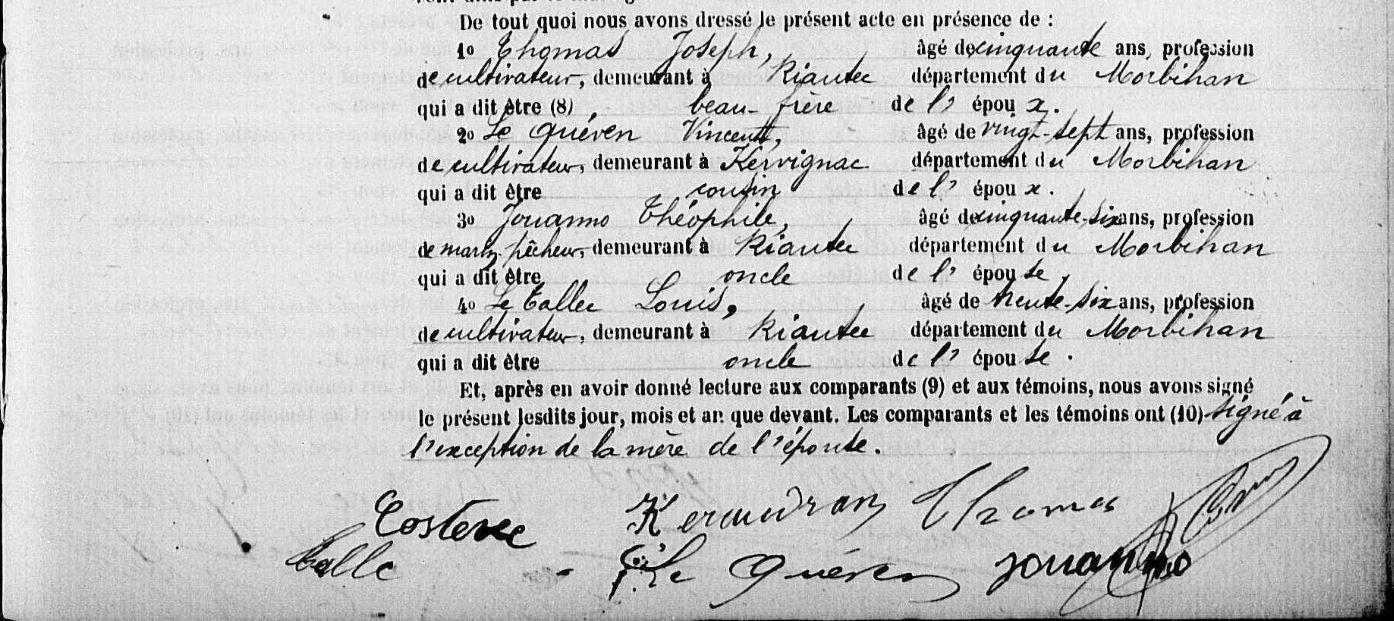 De tout quoi nous avons dressé le présent acte en présence de :
1o Thomas Joseph, âgé de cinquante ans, profession
de cultivateur, demeurant à Riantec département du Morbihan
qui a dit être (8) beau-frère de l' épou x.
2o Le Quéven Vincent, âgé de vingt-sept ans, profession
de cultivateur, demeurant à Kervignac département du Morbihan
qui a dit être cousin de l' épou x.
3o Jouanno Théophile, âgé de cinquante-six ans, profession
de marin pêcheur, demeurant à Riantec département du Morbihan
qui a dit être oncle de l' épou se,
4o Le Tallec Louis, âgé de trente-six ans, profession
de cultivateur, demeurant à Riantec département du Morbihan
qui a dit être oncle de l' épou se.
Et, après en avoir donné lecture aux comparants (9) et aux témoins, nous avons signé
le présent lesdits jour, mois et an que devant. Les comparants et les témoins ont (10) signé à
l'exception de la mère de l'épouse.
Costevec Thomas
Le Quéven Jouanno